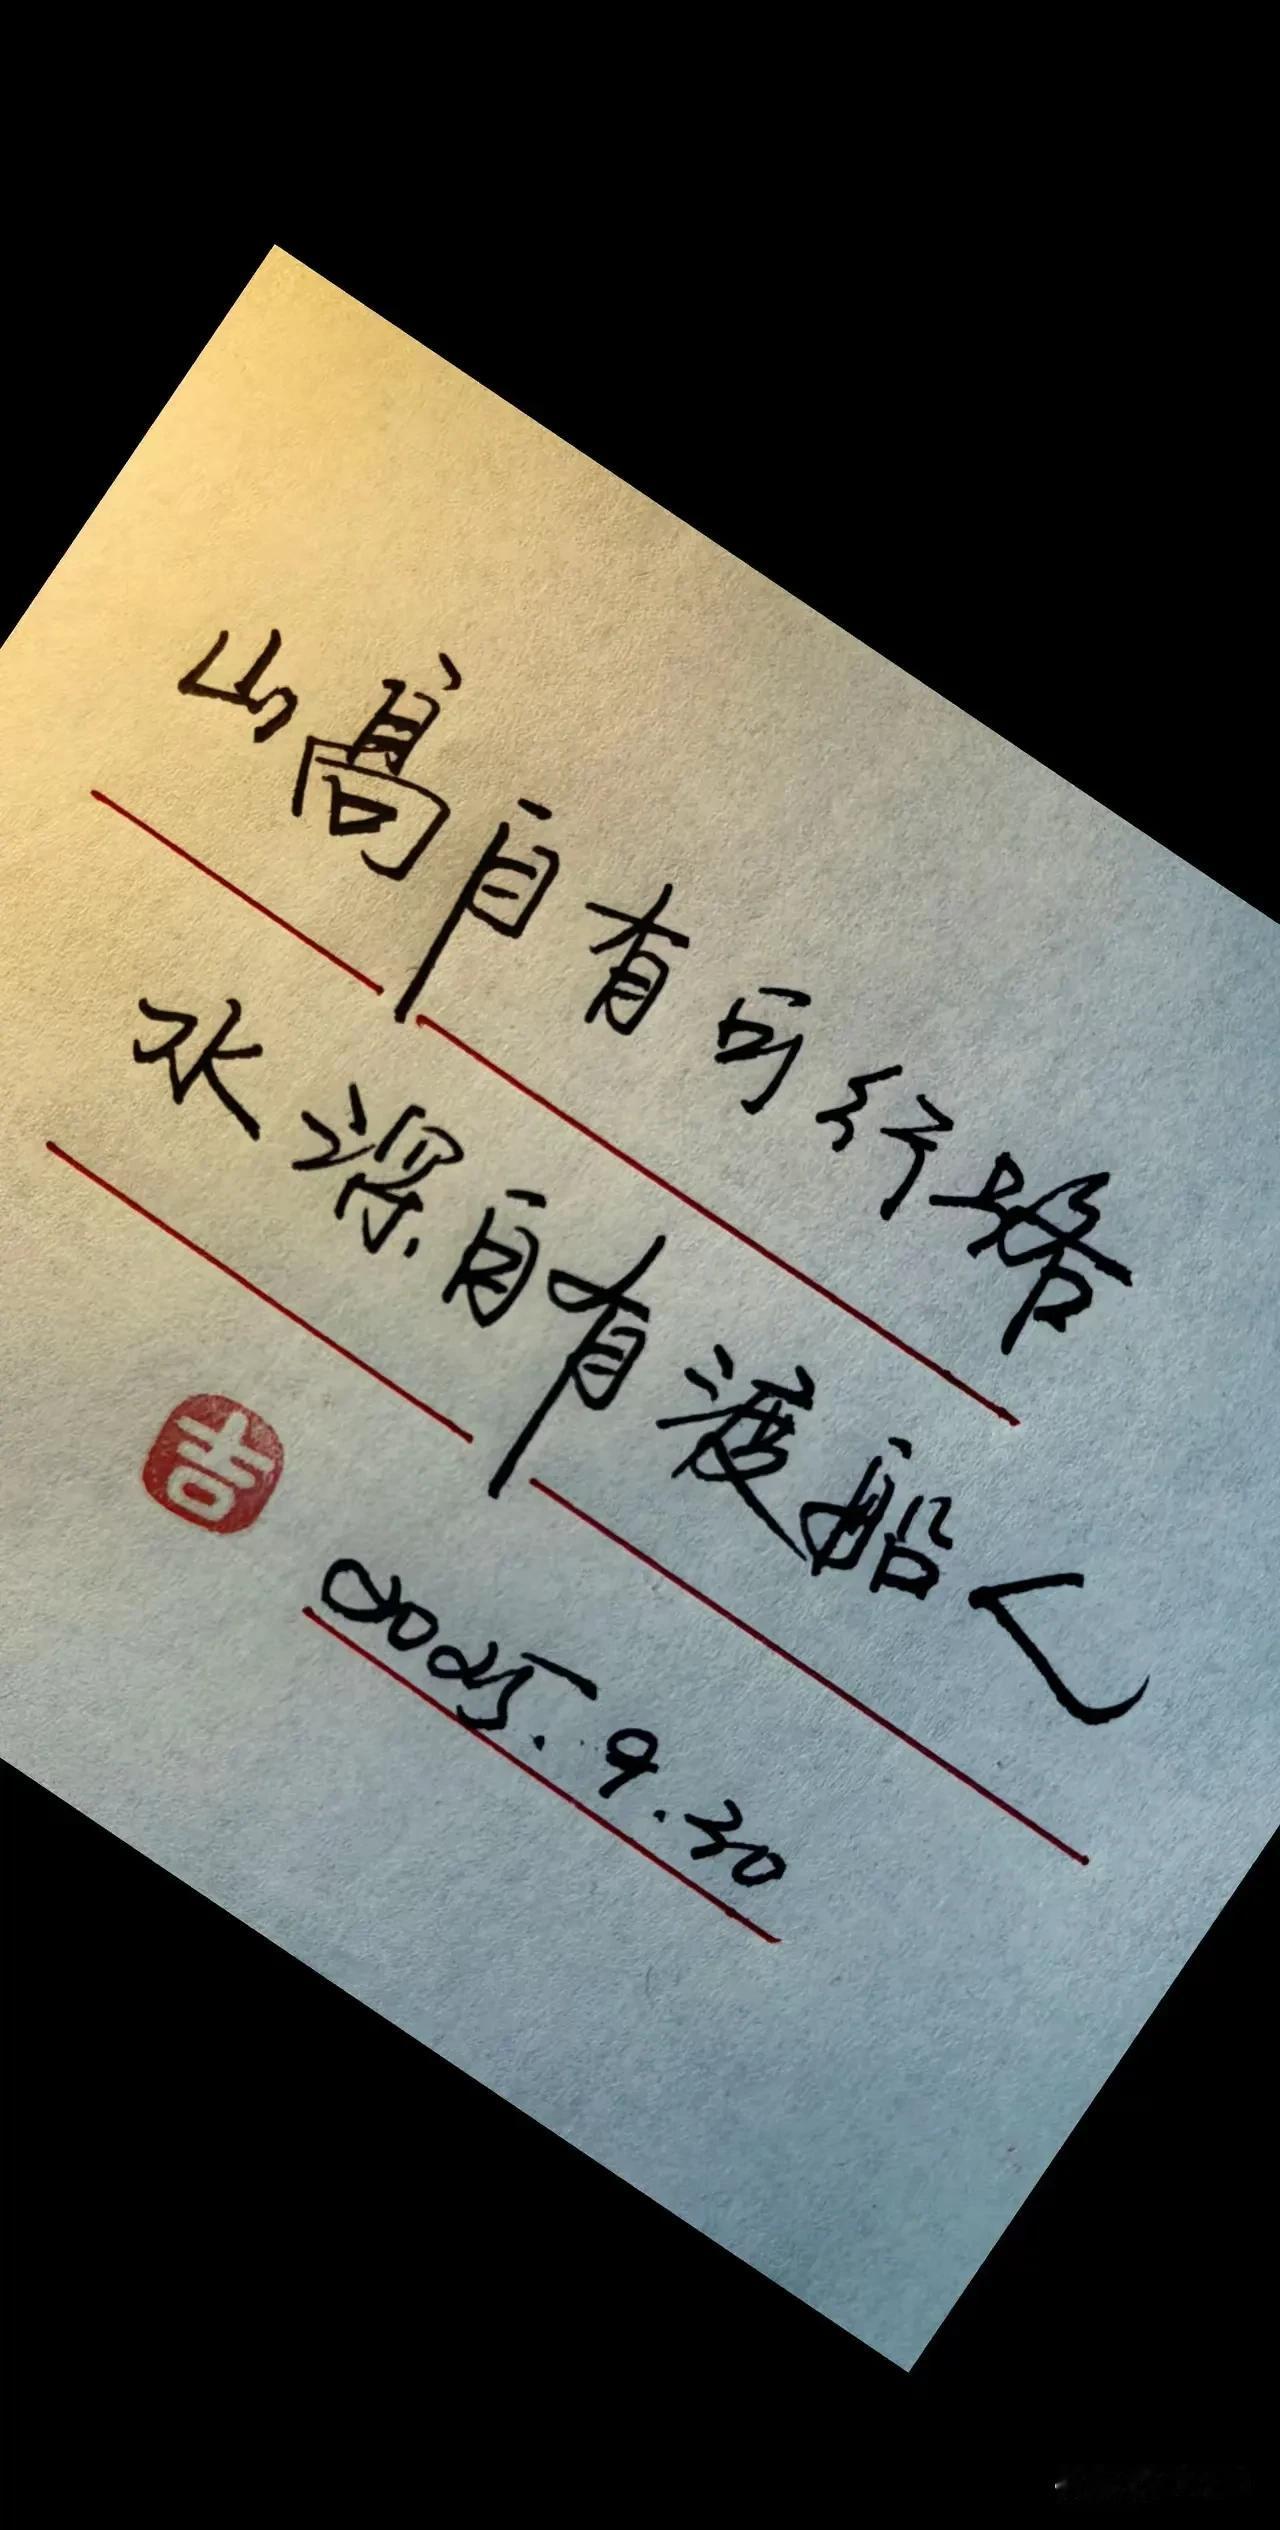 山高自有可行路
水深自有渡船人
吉
2025.9.30